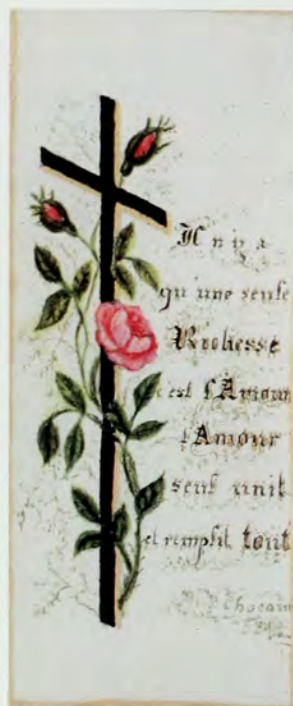 Il n'y a
qu'une seule
Richesse
c'est l'Amour
l'Amour
seul unit
et remplit tout